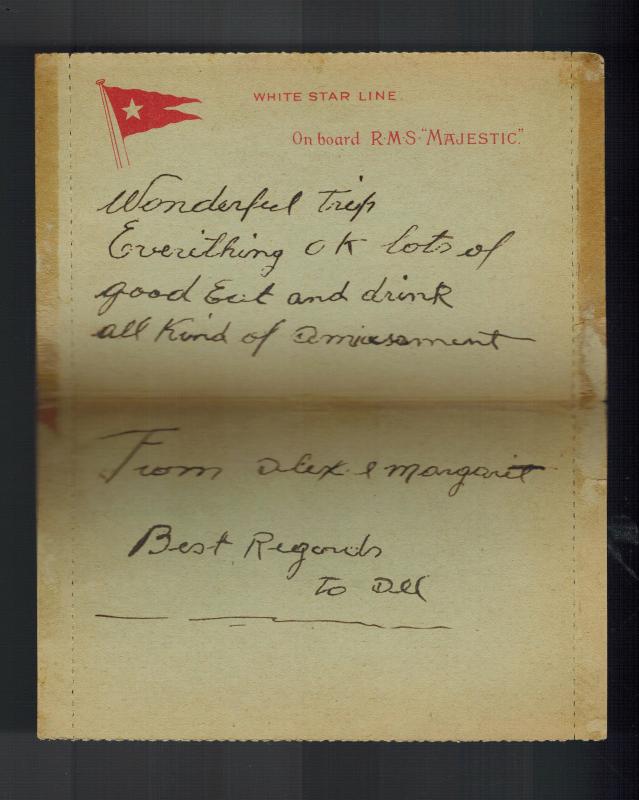 WHITE STAR LINE.
On board R·M·S·"MAJESTIC."
Wonderful Trip
Everithing OK lots of
good Eat and drink
all Kind of amusement
From Alex & Margarit
Best Regards
To All